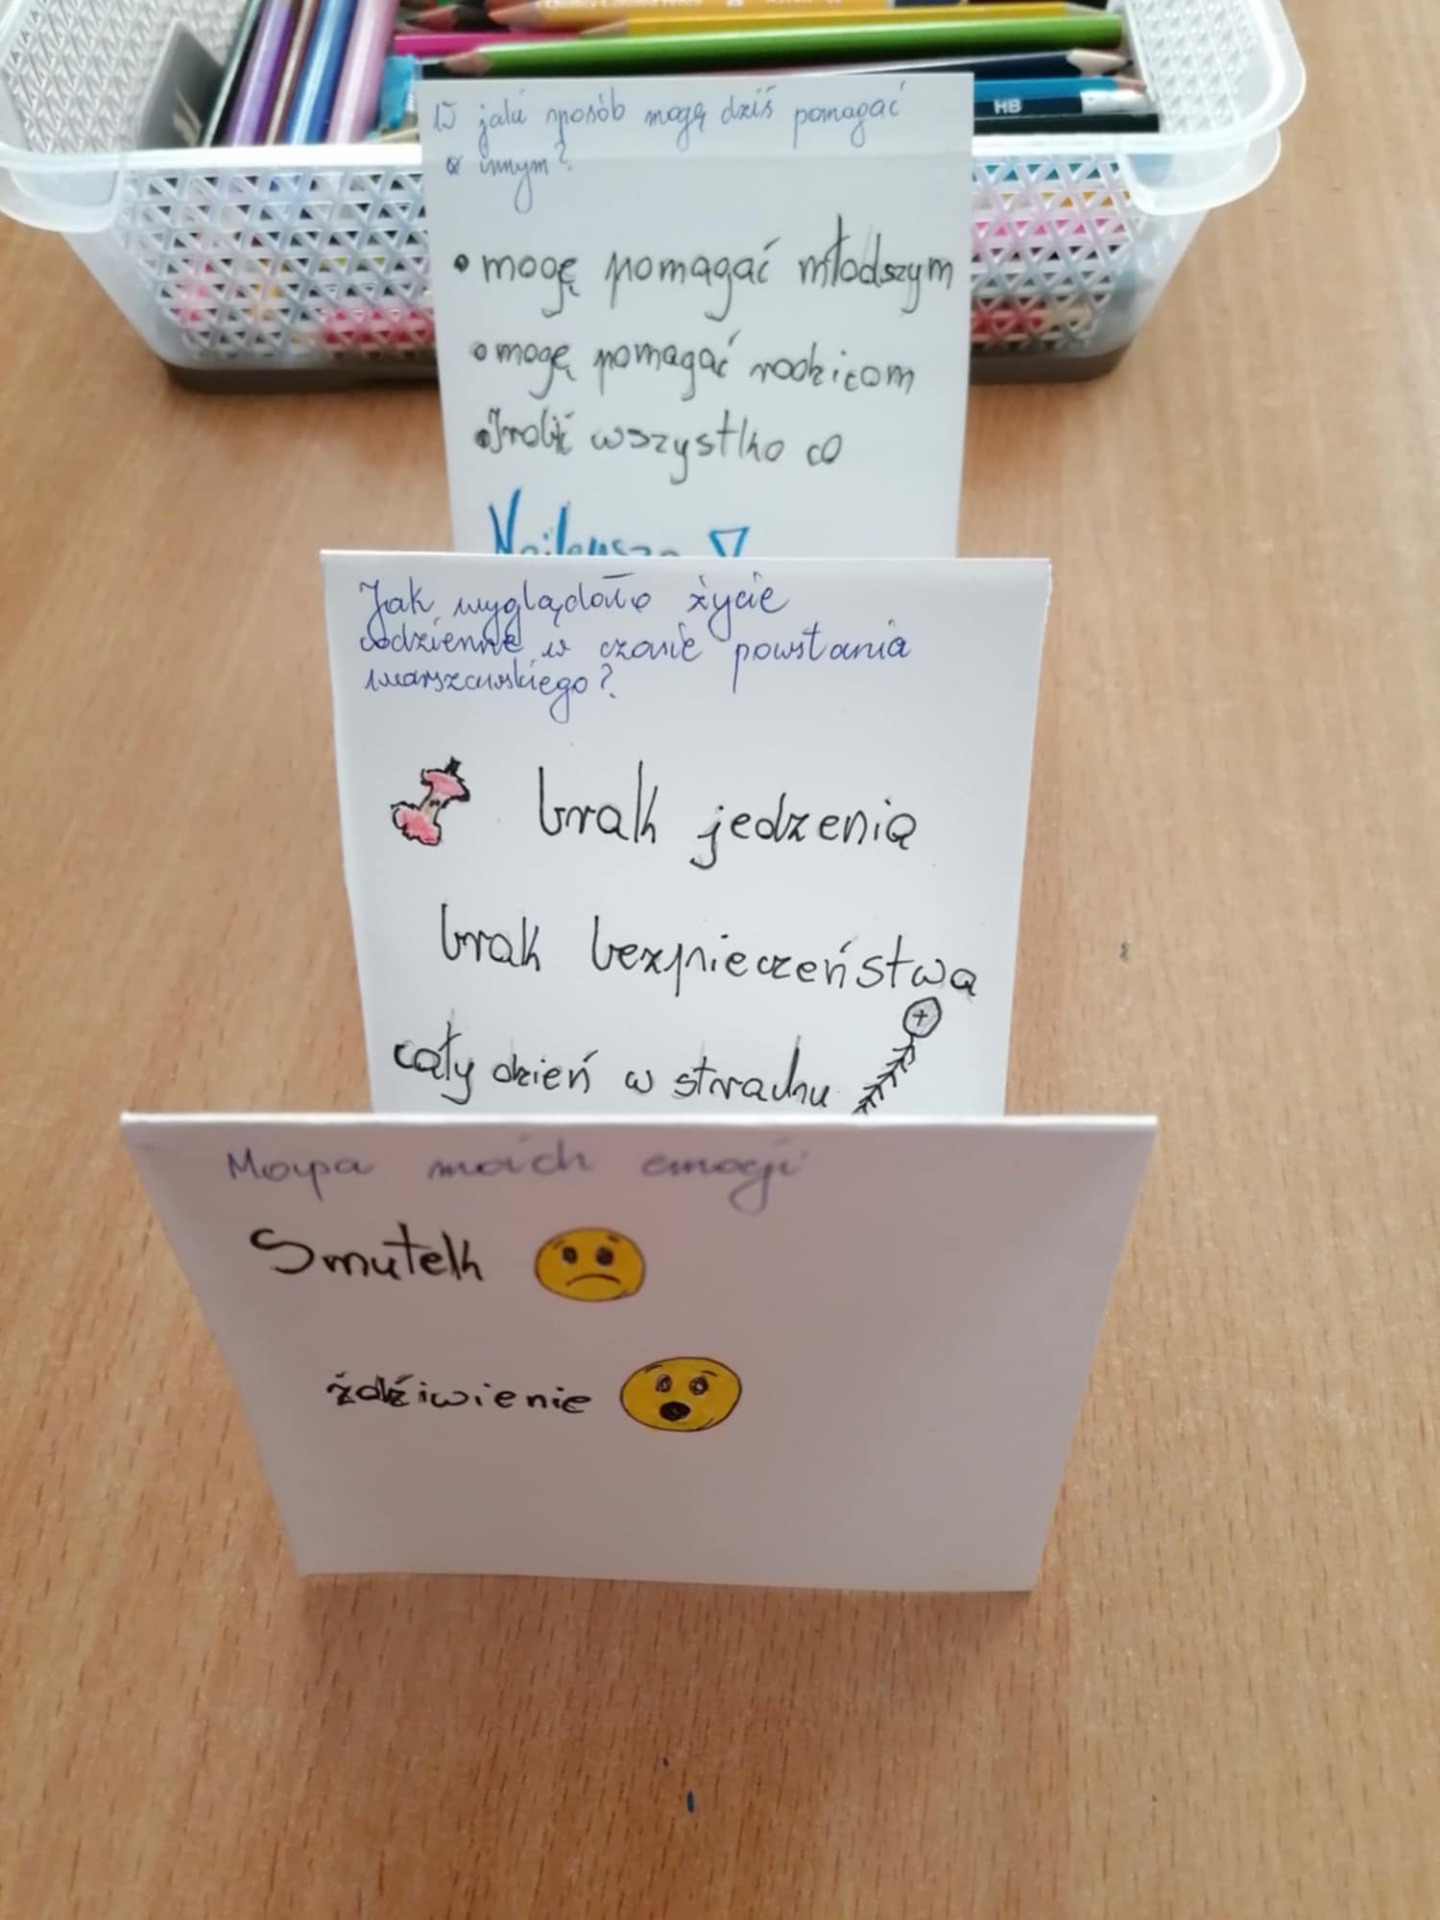 HB
W jaki sposób mogę dziś pomagać
innym?
• mogę pomagać młodszym
• mogę pomagać rodzicom
• robić wszystko co
Najlepsze
Jak wyglądało życie
codzienne w czasie powstania
warszawskiego?
brak jedzenia
brak bezpieczeństwa
cały dzień w strachu
Mapa moich emocji
Smutek
źdźiwienie